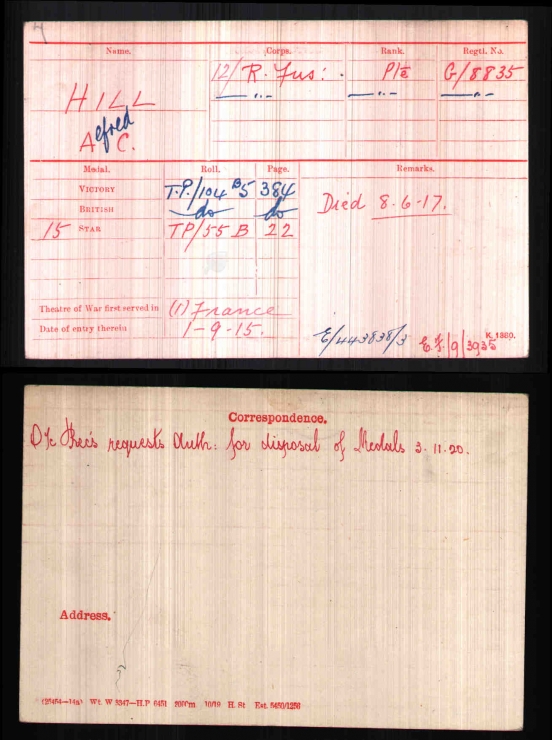 Name. Corps. Rank. Regtl. No.
HILL 12/ R. Fus: Pte G/8835
— " — — " — — " —
Alfred C.
Medal. Roll. Page. Remarks.
VICTORY T.P./104 B5 384
BRITISH do do
Died 8.6.17.
15 STAR TP/55 B 22
Theatre of War first served in (1) France
Date of entry therein 1-9-15.
E/443838/3 K. 1380.
Correspondence.
O i/c Rec's requests Auth: for disposal of Medals 3.11.20.
Address.
Wt. W 5347—H.P 6451 10/19 H. St